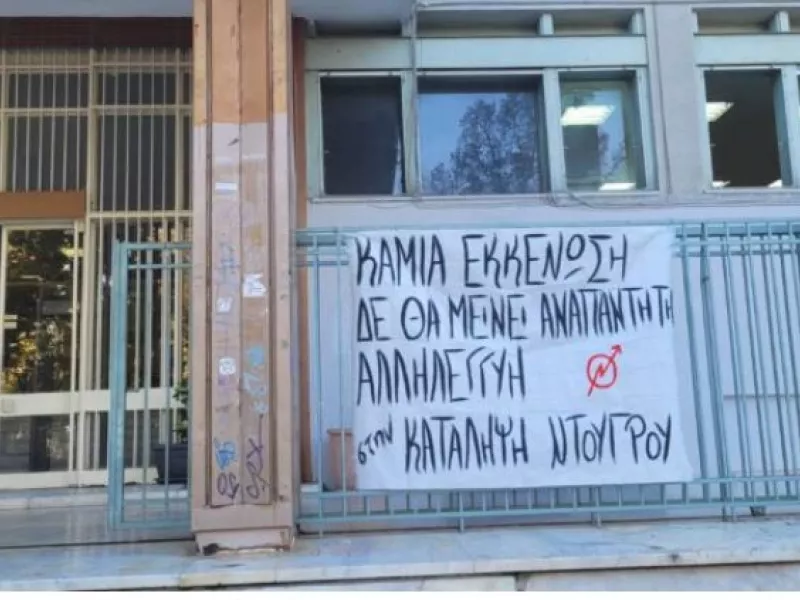 ΚΑΜΙΑ ΕΚΚΕΝΩΣΗ
ΔΕ ΘΑ ΜΕΙΝΕΙ ΑΝΑΠΑΝΤΗΤΗ
ΑΛΛΗΛΕΓΓΥΗ
στην ΚΑΤΑΛΗΨΗ ΝΤΟΥΓΡΟΥ